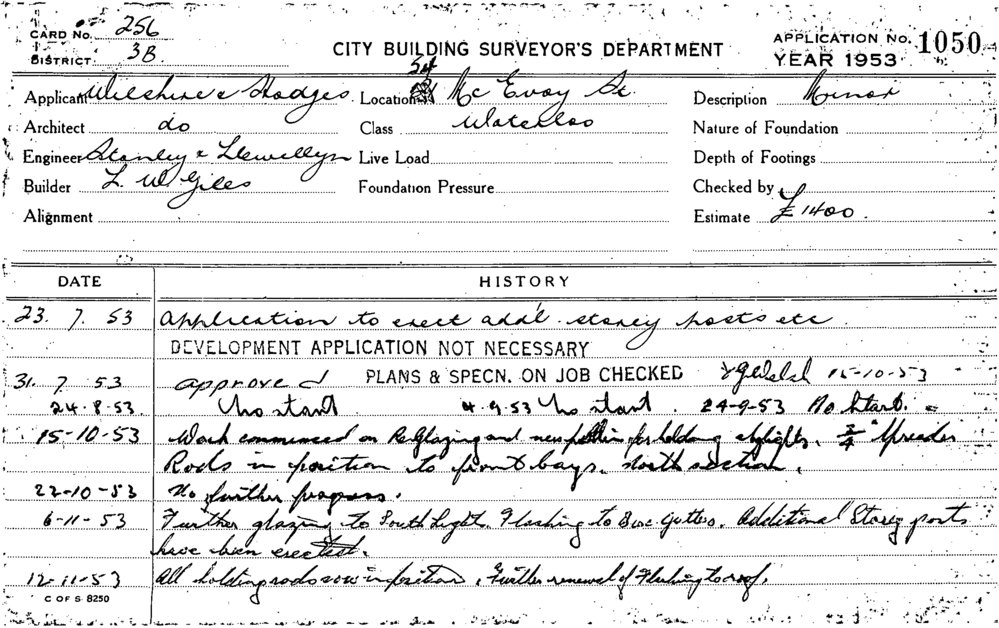 CARD No. 256
DISTRICT. 3B.
CITY BUILDING SURVEYOR'S DEPARTMENT
APPLICATION No. 1050
YEAR 1953
Applicant Wilshire & Hodges Location 34 McEvoy St. Description Minor
Architect do Class Waterloo Nature of Foundation
Engineer Stanley & Llewellyn Live Load Depth of Footings
Builder L. W. Giles Foundation Pressure Checked by
Alignment Estimate £1400.
DATE HISTORY
23. 7. 53 Application to erect addl. storey posts etc
DEVELOPMENT APPLICATION NOT NECESSARY
31. 7. 53 approved PLANS & SPECN. ON JOB CHECKED 15-10-53
24.8.53. No start 4.9.53 No start. 24-9-53 No Start.
15-10-53 Work commenced on ReGlazing and new for holding skylights. 3/4" Spreader
Rods in position to front bays. North section.
22-10-53 No further progress.
6-11-53 Further glazing to South Light. Flashing to Box Gutters. Additional Storey posts
have been erected.
12-11-53 All holding rods now in position. Further renewal of Flashing to roof.
C OF S 8250